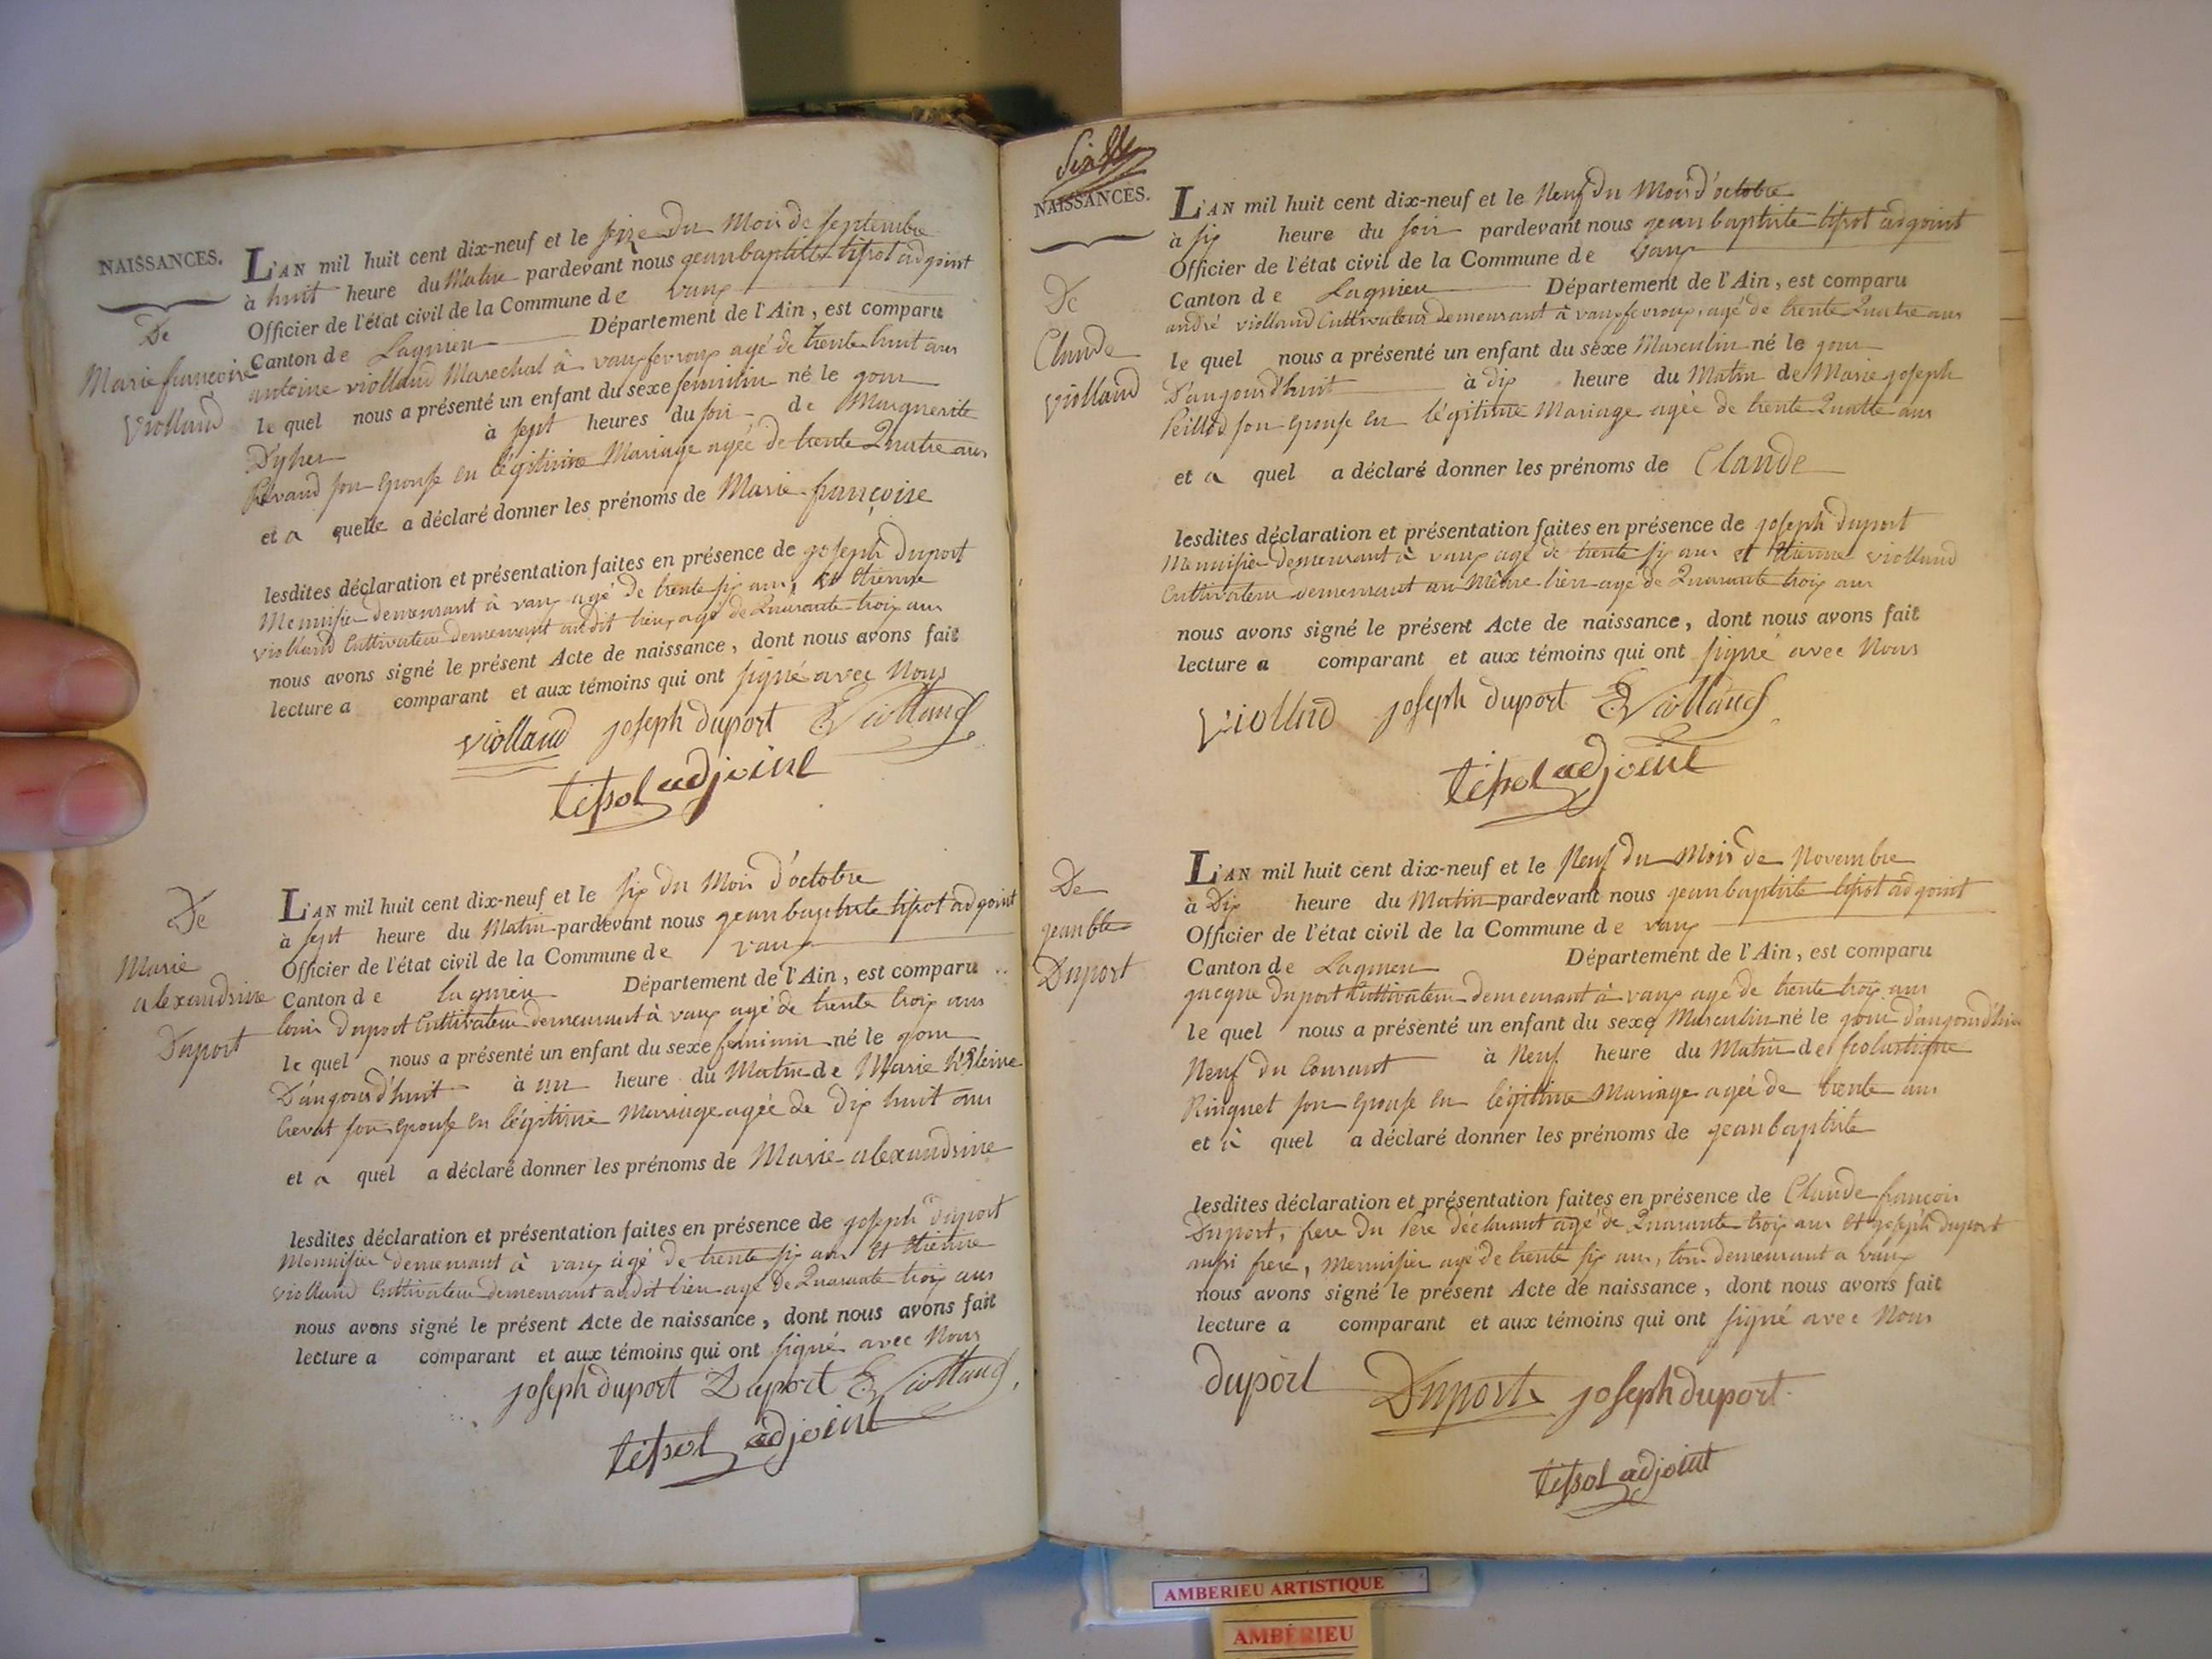 NAISSANCES.
De
Marie françoise
Violland
L'AN mil huit cent dix-neuf et le seize du Mois de septembre
à huit heure du Matin pardevant nous jean baptiste tissot adjoint
Officier de l'état civil de la Commune de vaux
Canton de Lagnieu Département de l'Ain, est comparu
antoine violland Marechal à vauxfevroux agé de trente huit ans
le quel nous a présenté un enfant du sexe feminin né le jour
D'yher à sept heures du soir de Marguerite
Revand son epouse en légitime Mariage agée de trente Quatre ans
et a quelle a déclaré donner les prénoms de Marie françoise
lesdites déclaration et présentation faites en présence de joseph duport
Menuisier demeurant à vaux agé de trente six ans, et etienne
violland Cultivateur demeurant audit lieu, agé de Quarante trois ans
nous avons signé le présent Acte de naissance, dont nous avons fait
lecture a comparant et aux témoins qui ont signé avec Nous
violland joseph duport E Violland
tissot adjoint
De
Marie
alexandrine
Duport
L'AN mil huit cent dix-neuf et le six du Mois d'octobre
à sept heure du Matin pardevant nous jean baptiste tissot adjoint
Officier de l'état civil de la Commune de vaux
Canton de lagnieu Département de l'Ain, est comparu
louis Duport Cultivateur demeurant à vaux agé de trente trois ans
le quel nous a présenté un enfant du sexe feminin né le jour
D'aujourd'huit à un heure du Matin de Marie héleine
Crevat son epouse en légitime Mariage agée de dix huit ans
et a quel a déclaré donner les prénoms de Marie alexandrine
lesdites déclaration et présentation faites en présence de joseph duport
Menuisier demeurant à vaux agé de trente six ans et etienne
violland Cultivateur demeurant audit lieu agé De Quarante trois ans
nous avons signé le présent Acte de naissance, dont nous avons fait
lecture a comparant et aux témoins qui ont signé avec Nous
joseph duport Duport E Violland
tissot adjoint
NAISSANCES.
De
Claude
violland
L'AN mil huit cent dix-neuf et le Neuf du Mois d'octobre
à six heure du soir pardevant nous jean baptiste tissot adjoint
Officier de l'état civil de la Commune de vaux
Canton de Lagnieu Département de l'Ain, est comparu
andré violland Cultivateur demeurant à vauxfevroux, agé de trente Quatre ans
le quel nous a présenté un enfant du sexe Masculin né le jour
D'aujourd'huit à dix heure du Matin de Marie joseph
Peillod son epouse en légitime Mariage agée de trente Quatre ans
et a quel a déclaré donner les prénoms de Claude
lesdites déclaration et présentation faites en présence de joseph duport
Menuisier demeurant à vaux agé de trente six ans et etienne violland
Cultivateur demeurant au Même lieu agé de Quarante trois ans
nous avons signé le présent Acte de naissance, dont nous avons fait
lecture a comparant et aux témoins qui ont signé avec Nous
Violland joseph duport E Violland
tissot adjoint
De
jean bte
Duport
L'AN mil huit cent dix-neuf et le Neuf du Mois de Novembre
à Dix heure du Matin pardevant nous jean baptiste tissot adjoint
Officier de l'état civil de la Commune de vaux
Canton de Lagnieu Département de l'Ain, est comparu
jacque Duport Cultivateur demeurant à vaux agé de trente trois ans
le quel nous a présenté un enfant du sexe Masculin né le jour d'aujourd'hui
Neuf du Courant à Neuf heure du Matin de scolastique
Ringuet son epouse en légitime Mariage agée de trente ans
et à quel a déclaré donner les prénoms de jean baptiste
lesdites déclaration et présentation faites en présence de Claude françois
Duport, frere du Pere déclarant agé de Quarante trois ans et joseph duport
aussi frere, Menuisier agé de trente six ans, tous demeurant a vaux
nous avons signé le présent Acte de naissance, dont nous avons fait
lecture a comparant et aux témoins qui ont signé avec Nous
duport Duport joseph duport
tissot adjoint
AMBERIEU ARTISTIQUE
AMBÉRIEU